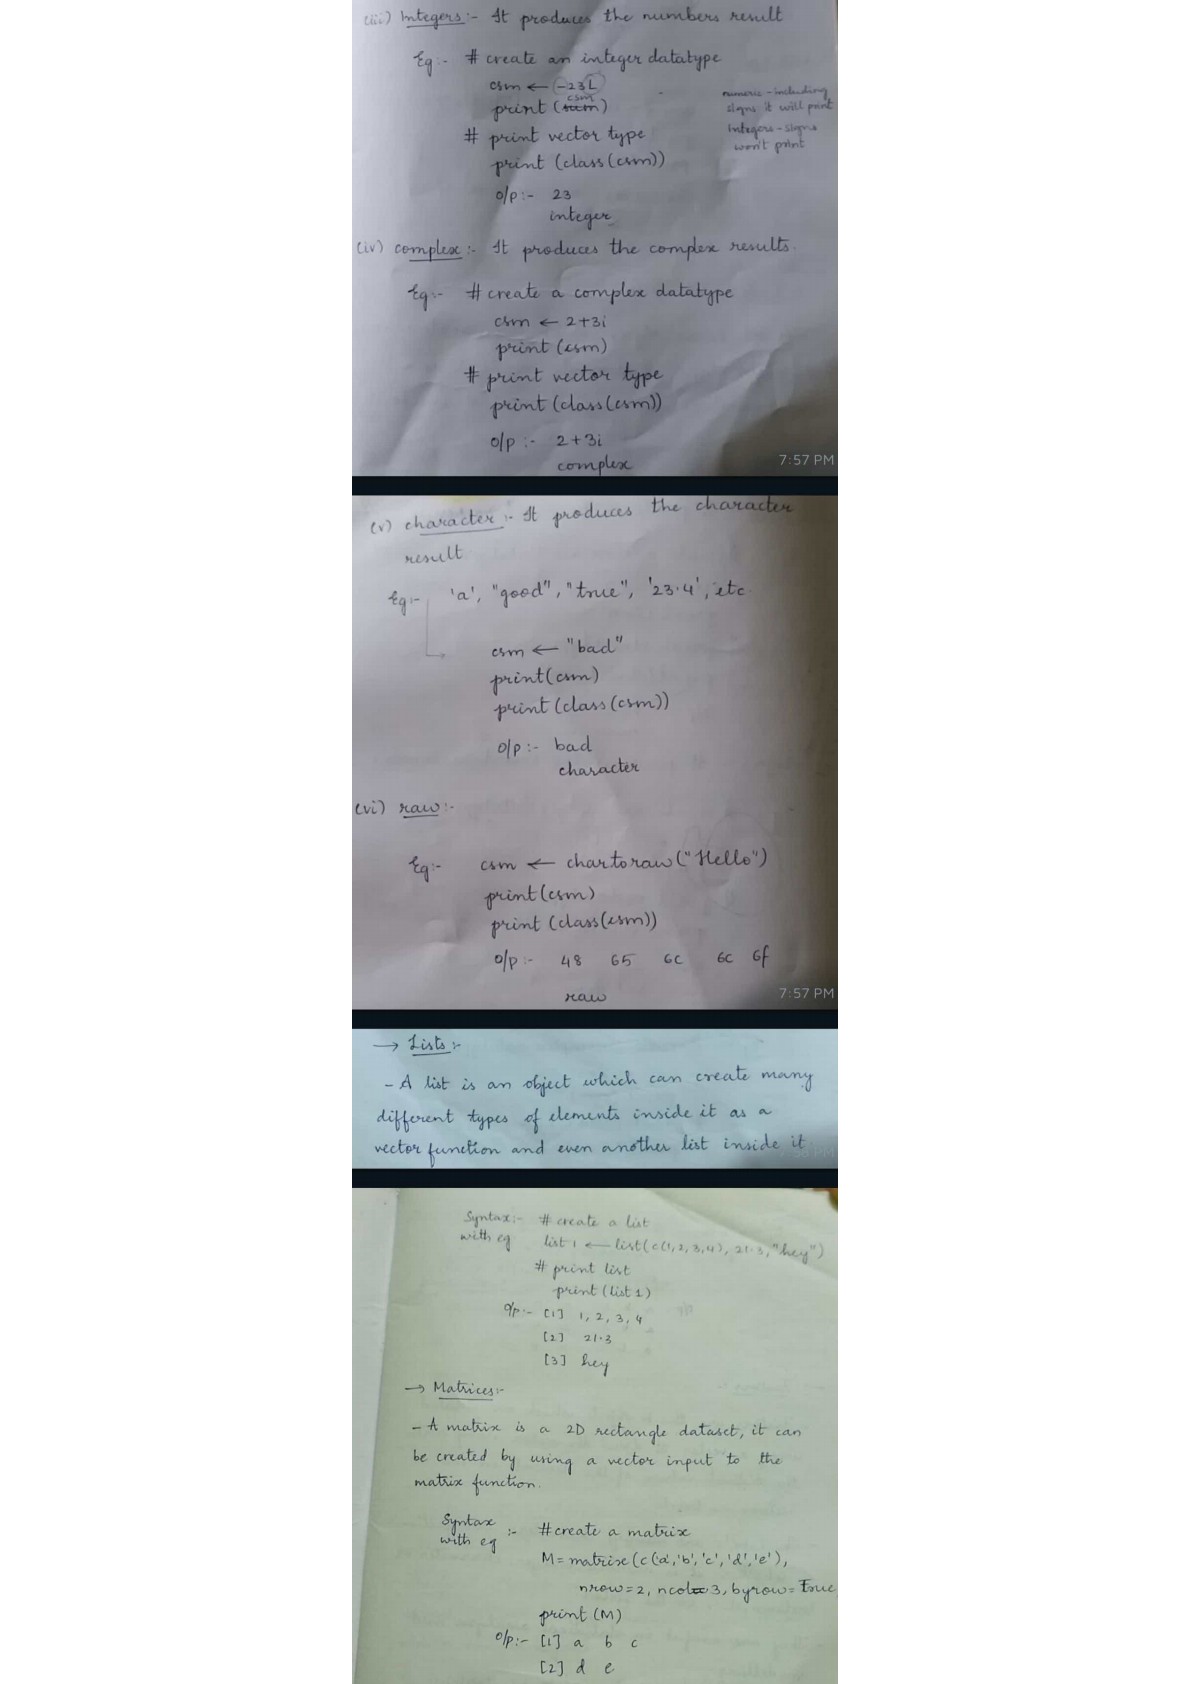 (iii) Integers :- It produces the numbers result
Eg :- # create an integer datatype
csm ← -23L
print (csm)
numeric - including
signs it will print
Integers - signs
won't print
# print vector type
print (class (csm))
o/p :- 23
integer
(iv) complex :- It produces the complex results.
Eg :- # create a complex datatype
csm ← 2+3i
print (csm)
# print vector type
print (class (csm))
o/p :- 2+3i
complex
7:57 PM
(v) character :- It produces the character
result
Eg :- 'a', "good", "true", '23.4', etc
csm ← "bad"
print(csm)
print (class (csm))
o/p :- bad
character
(vi) raw :-
Eg :- csm ← chartoraw ("Hello")
print (csm)
print (class (csm))
o/p :- 48 65 6c 6c 6f
raw
7:57 PM
→ Lists :-
- A list is an object which can create many
different types of elements inside it as a
vector function and even another list inside it
Syntax :- # create a list
with eg list 1 ← list( c(1,2,3,4), 21.3, "hey")
# print list
print (list 1)
o/p :- [1] 1, 2, 3, 4
[2] 21.3
[3] hey
→ Matrices :-
- A matrix is a 2D rectangle dataset, it can
be created by using a vector input to the
matrix function.
Syntax
with eg :- # create a matrix
M = matrix (c ('a','b','c','d','e'),
nrow = 2, ncol = 3, byrow = True
print (M)
o/p :- [1] a b c
[2] d e